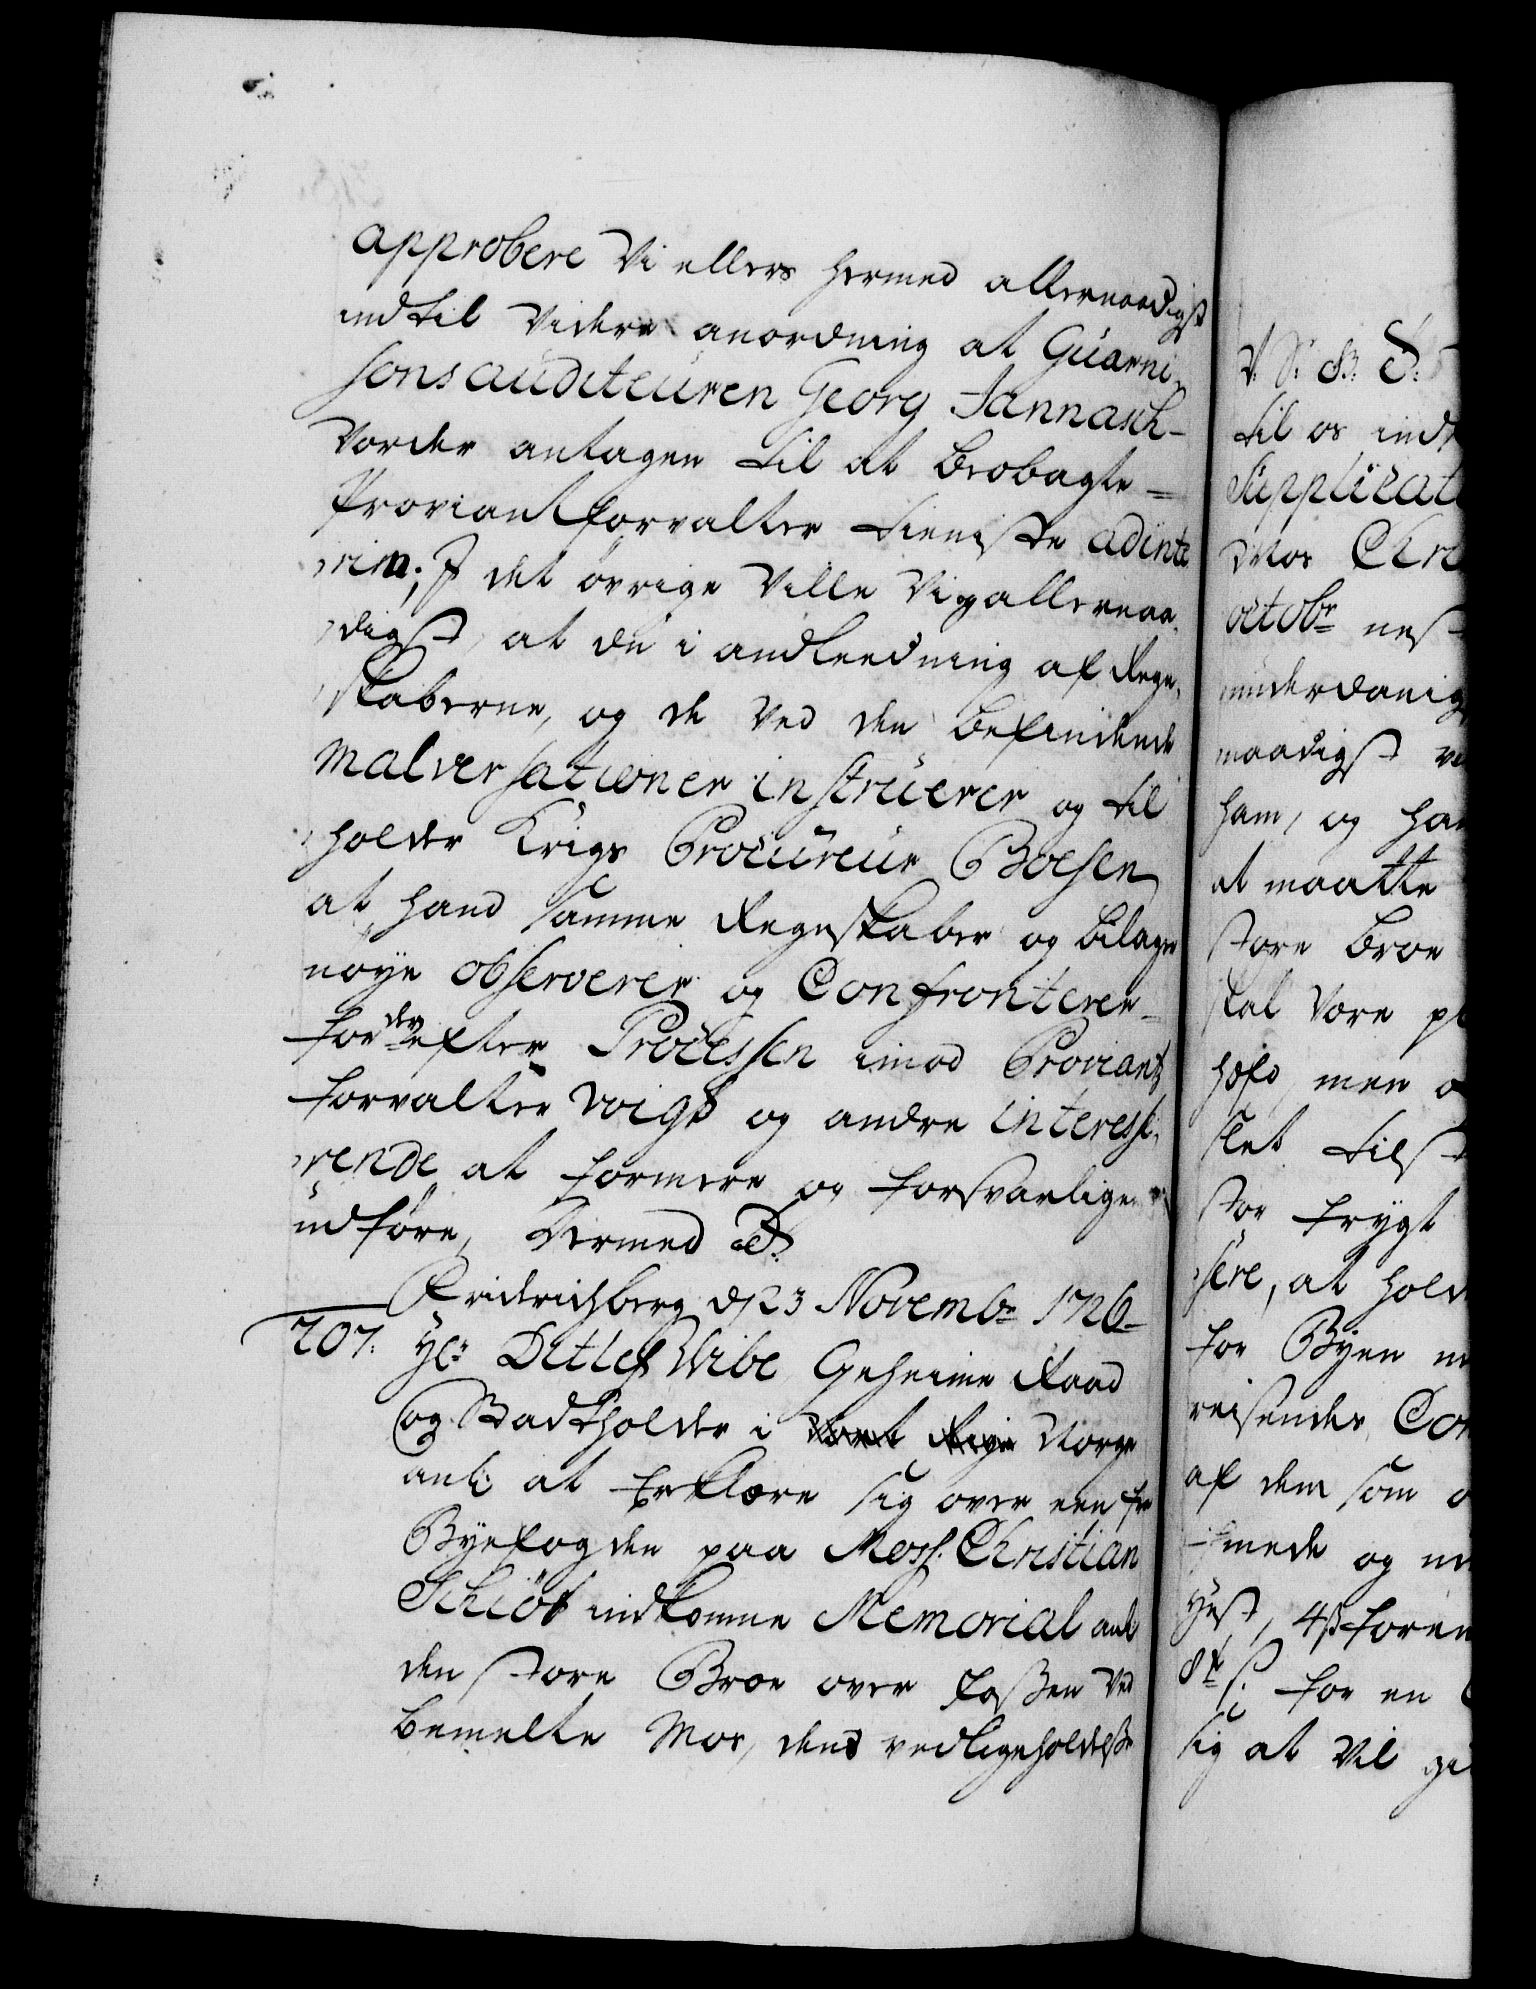 approbere Vi ellers hermed allernaadigst
indtil videre anordning at Guarni-
sons auditeuren Georg Jannasch
Vorder antagen til at beobagte
Proviantforvalter tieniste adinte
rim; J det øvrige Ville Vi allernaa-
digst, at du i andleedning af Regn-
skaberne, og de ved den befindende
malversationer instruerer og til
holder Krigs Procureur Boesen
at hand samme Regnskaber og bilager
nøye observerer og Confronterer
for der efter Processen imod Proviant
forvalter Voigt og andre interesse-
rende at formere og forsvarligen
udføre, Dermed p.
Friderichsberg d 23 Novembr 1726
707. Hr Ditlef Wibe Geheime Raad
og Stadtholder i Vort Rige Norge
anl: at Erklære sig over een fra
Byefogden paa Moss. Christian
Schiøt indkomne Memorial anl
den store Broe over foßen ved
bemelte Mos, dens vedligeholdelse
V. S. G. T.
til os ind
Supplicat
Mos Chr
octobr nest
underdanig
naadigst
ham, og han
at maatte
store broe
skal være
høfd, men
slet tilst
stor frygt
sere, at hold
for Byen
reisendes Con
af dem som
mede og
Hest, 4 ß foren
8 ß. for en
sig at vil